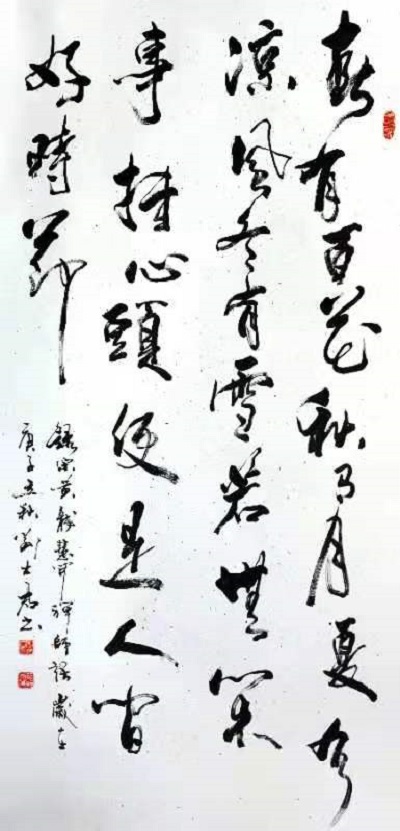 春有百花秋有月夏有
涼風冬有雪若無閑
事挂心頭便是人間
好時節
錄宋黄龍慧開禪師語歲在
庚子秋士书